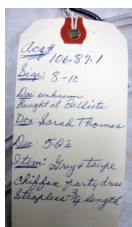 Acq#
106.87.1
Size: 8-10
Doe: unknown
Bought at Ballista
Dox: Sarah Thomas
De: 50's
Item: Grey & taupe
Chiffon party dress
Strapless - ¾ length